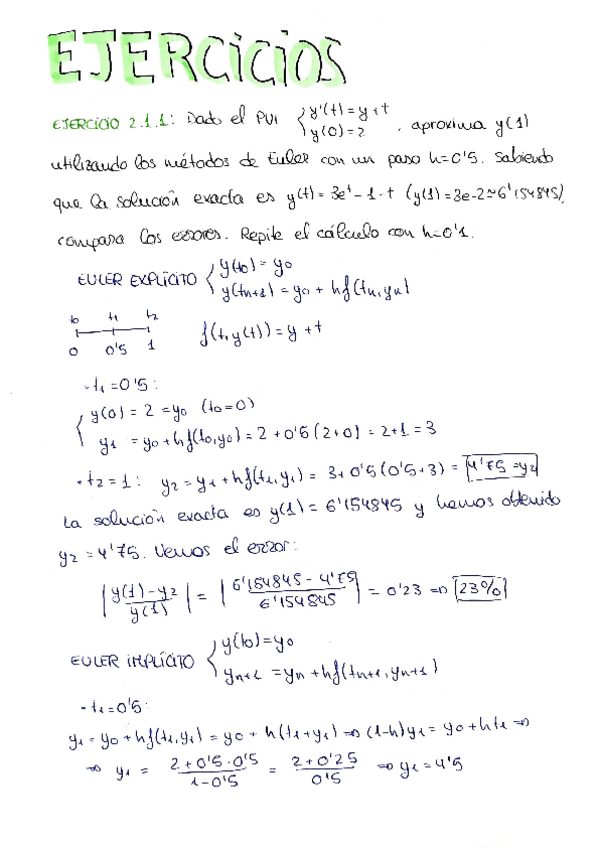 EJERCICIOS
EJERCICIO 2.1.1: Dado el PVI { y'(t) = y + t
y(0) = 2 , aproxima y(1)
utilizando los métodos de Euler con un paso h=0'5. Sabiendo
que la solución exacta es y(t) = 3e^t - 1 - t (y(1) = 3e-2 ≈ 6'154845),
compara los errores. Repite el cálculo con h=0'1.
EULER EXPLÍCITO { y(t0) = y0
y(tn+1) = y0 + hf(tn, yn)
t0 t1 t2
0 0'5 1
f(t, y(t)) = y + t
- t1 = 0'5:
{ y(0) = 2 = y0 (t0 = 0)
y1 = y0 + hf(t0, y0) = 2 + 0'5(2+0) = 2+1 = 3
· t2 = 1: y2 = y1 + hf(t1, y1) = 3 + 0'5(0'5+3) = 4'75 = y2
La solución exacta es y(1) = 6'154845 y hemos obtenido
y2 = 4'75. Vemos el error:
| y(1) - y2 / y(1) | = | 6'154845 - 4'75 / 6'154845 | = 0'23 ⇒ 23%
EULER IMPLÍCITO { y(t0) = y0
yn+1 = yn + hf(tn+1, yn+1)
- t1 = 0'5:
y1 = y0 + hf(t1, y1) = y0 + h(t1 + y1) ⇒ (1-h)y1 = y0 + ht1 ⇒
⇒ y1 = 2 + 0'5 · 0'5 / 1 - 0'5 = 2 + 0'25 / 0'5 ⇒ y1 = 4'5